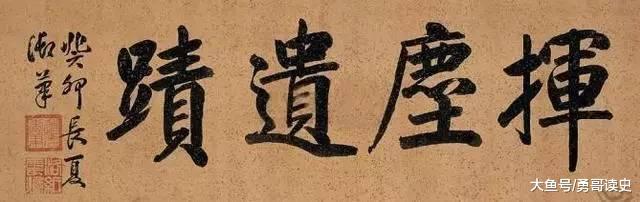 揮塵遺蹟
癸卯長夏
御筆
大鱼号/勇哥读史